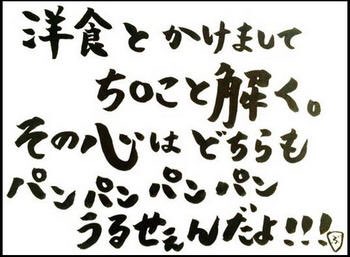 洋食とかけまして
ち○こと解く。
その心はどちらも
パンパンパンパン
うるせぇんだよ!!!